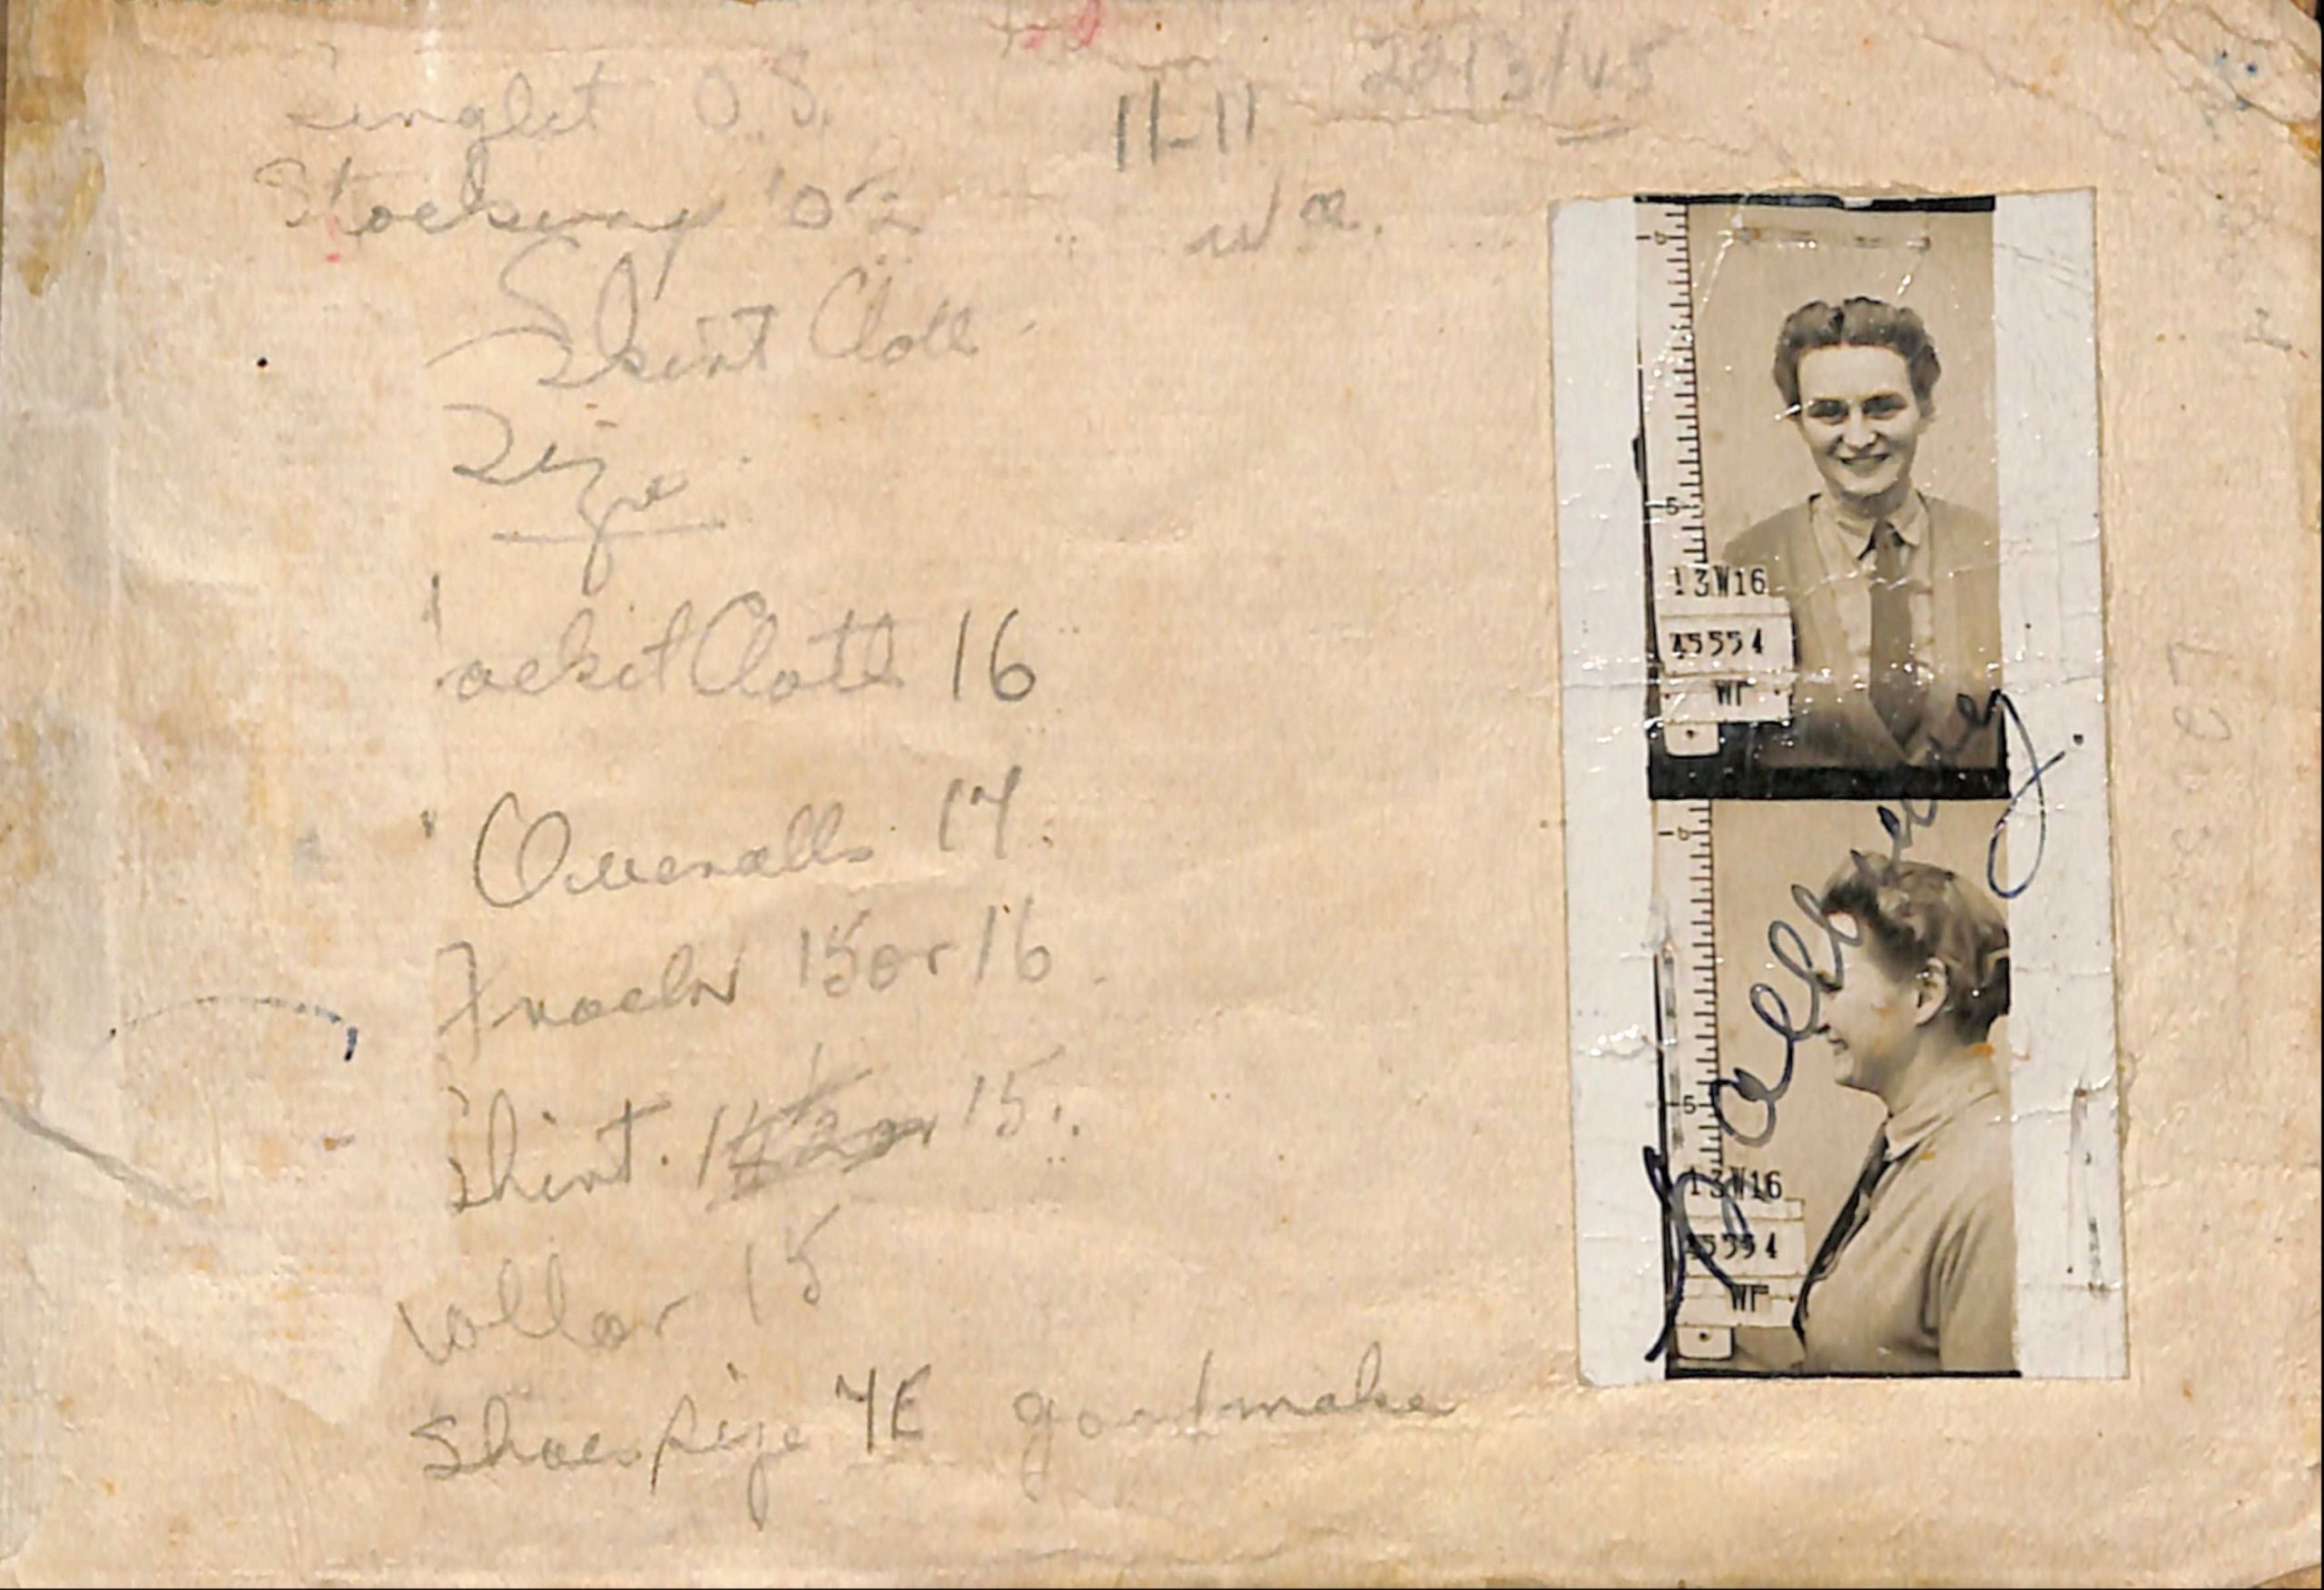 Singlet O.S. 11-11 22/3/45
Stockings
Skirt Cloth
Size
acket Cloth 16
Overalls 17
Frocks 15 or 16
Shirt. 15.
Collar 15
Shoe size 7E good make
13W16
45554
WF
13W16
WF